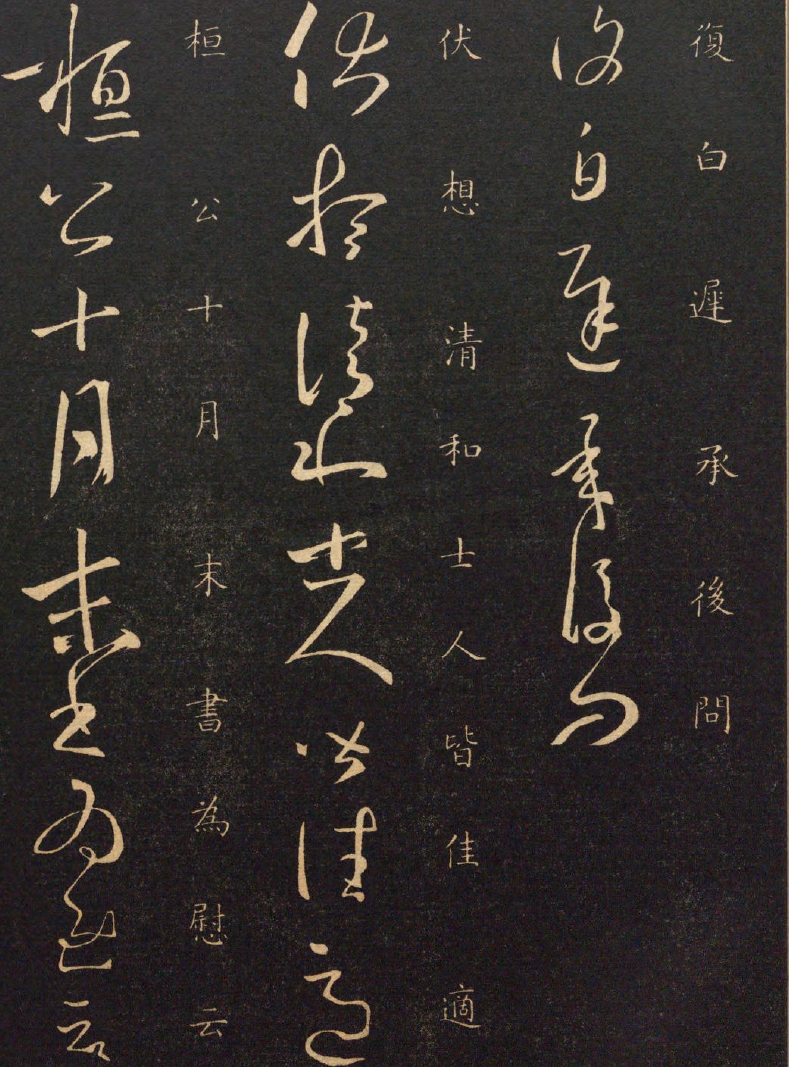 復白遲承後問
復白遲承後問
伏想清和士人皆佳適
伏想清和士人皆佳適
桓公十月末書為慰云
桓公十月末書為慰云